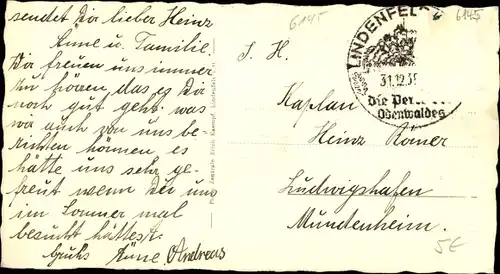 sendet Dir lieber Heinz
Änne u. Familie.
Wir freuen uns immer
zu hören, das es Dir
noch gut geht. was
wir auch von uns be-
richten können es
hätte uns sehr ge-
freut wenn Du uns
im Sommer mal
besucht hättest.
Gruhs Änne. Andreas
6145
6145
LINDENFELS
31.12.3
die Per
Odenwaldes
S. H.
Kaplan
Heinz Römer
Ludwigshafen
Mundenheim.
5€